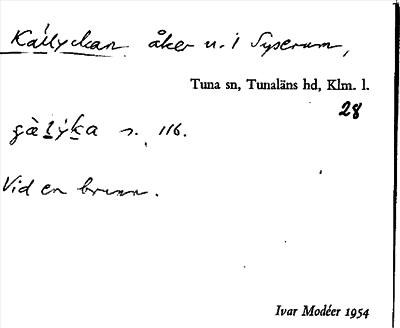 Källyckan åker u. i Syserum,
Tuna sn, Tunaläns hd, Klm. l.
28
s. 116.
Vid en brunn.
Ivar Modéer 1954